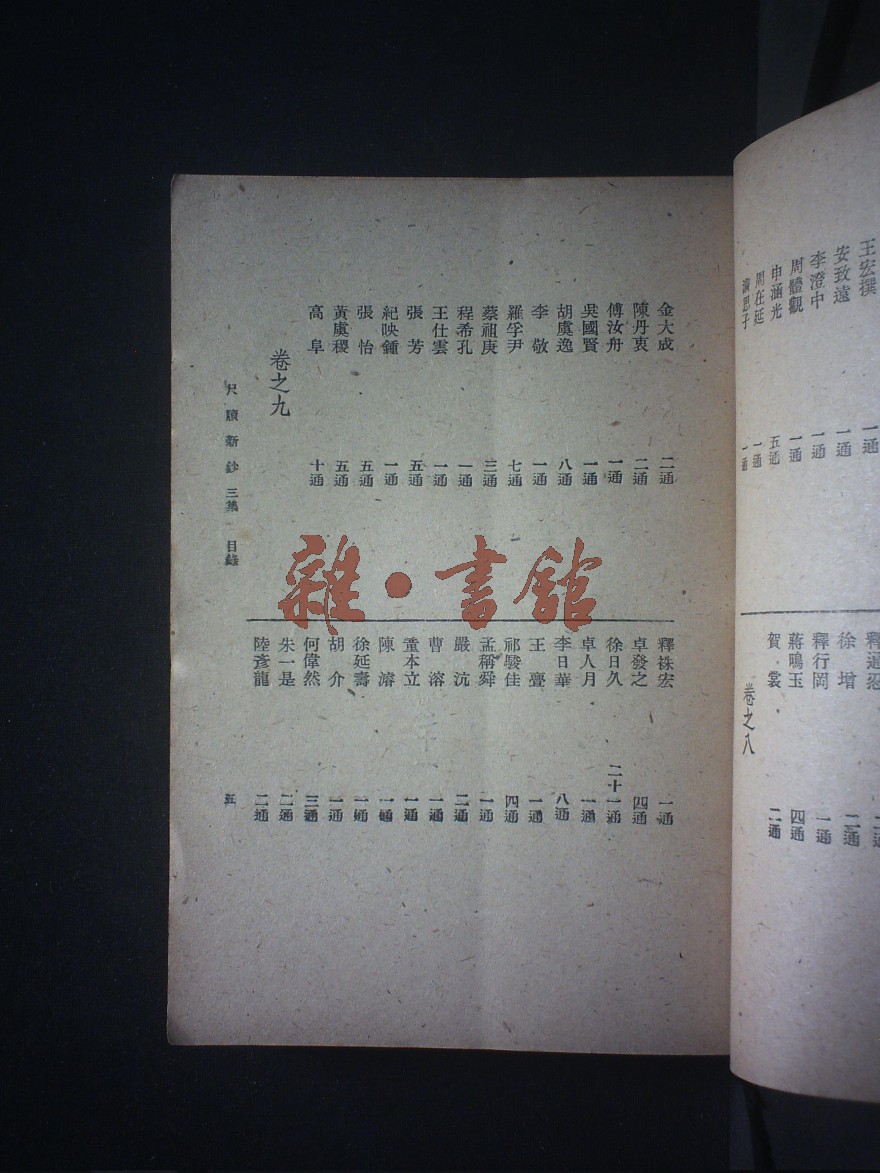 王宏撰 一通
安致遠 一通
李澄中 一通
周體觀 一通
申涵光 五通
周在延 一通
一通
釋通忍
徐增 二通
釋行岡 一通
蔣鳴玉 四通
賀裳 二通
卷之八
金大成 二通
陳丹衷 二通
傅汝舟 一通
吳國賢 一通
胡虞逸 八通
李敬 一通
羅孚尹 七通
蔡祖庚 三通
程希孔 一通
王仕雲 一通
張芳 五通
紀映鍾 一通
張怡 五通
黃虞稷 五通
高阜 十通
卷之九
釋袾宏 一通
卓發之 四通
徐日久 二十一通
卓人月 一通
李日華 八通
王亹 一通
祁駿佳 四通
孟稱舜 一通
嚴沆 二通
曹溶 一通
董本立 一通
陳濬 一通
徐延壽 一通
胡介 一通
何偉然 三通
朱一是 二通
陸彥龍 二通
尺牘新鈔三集 目錄
五
雜·書館